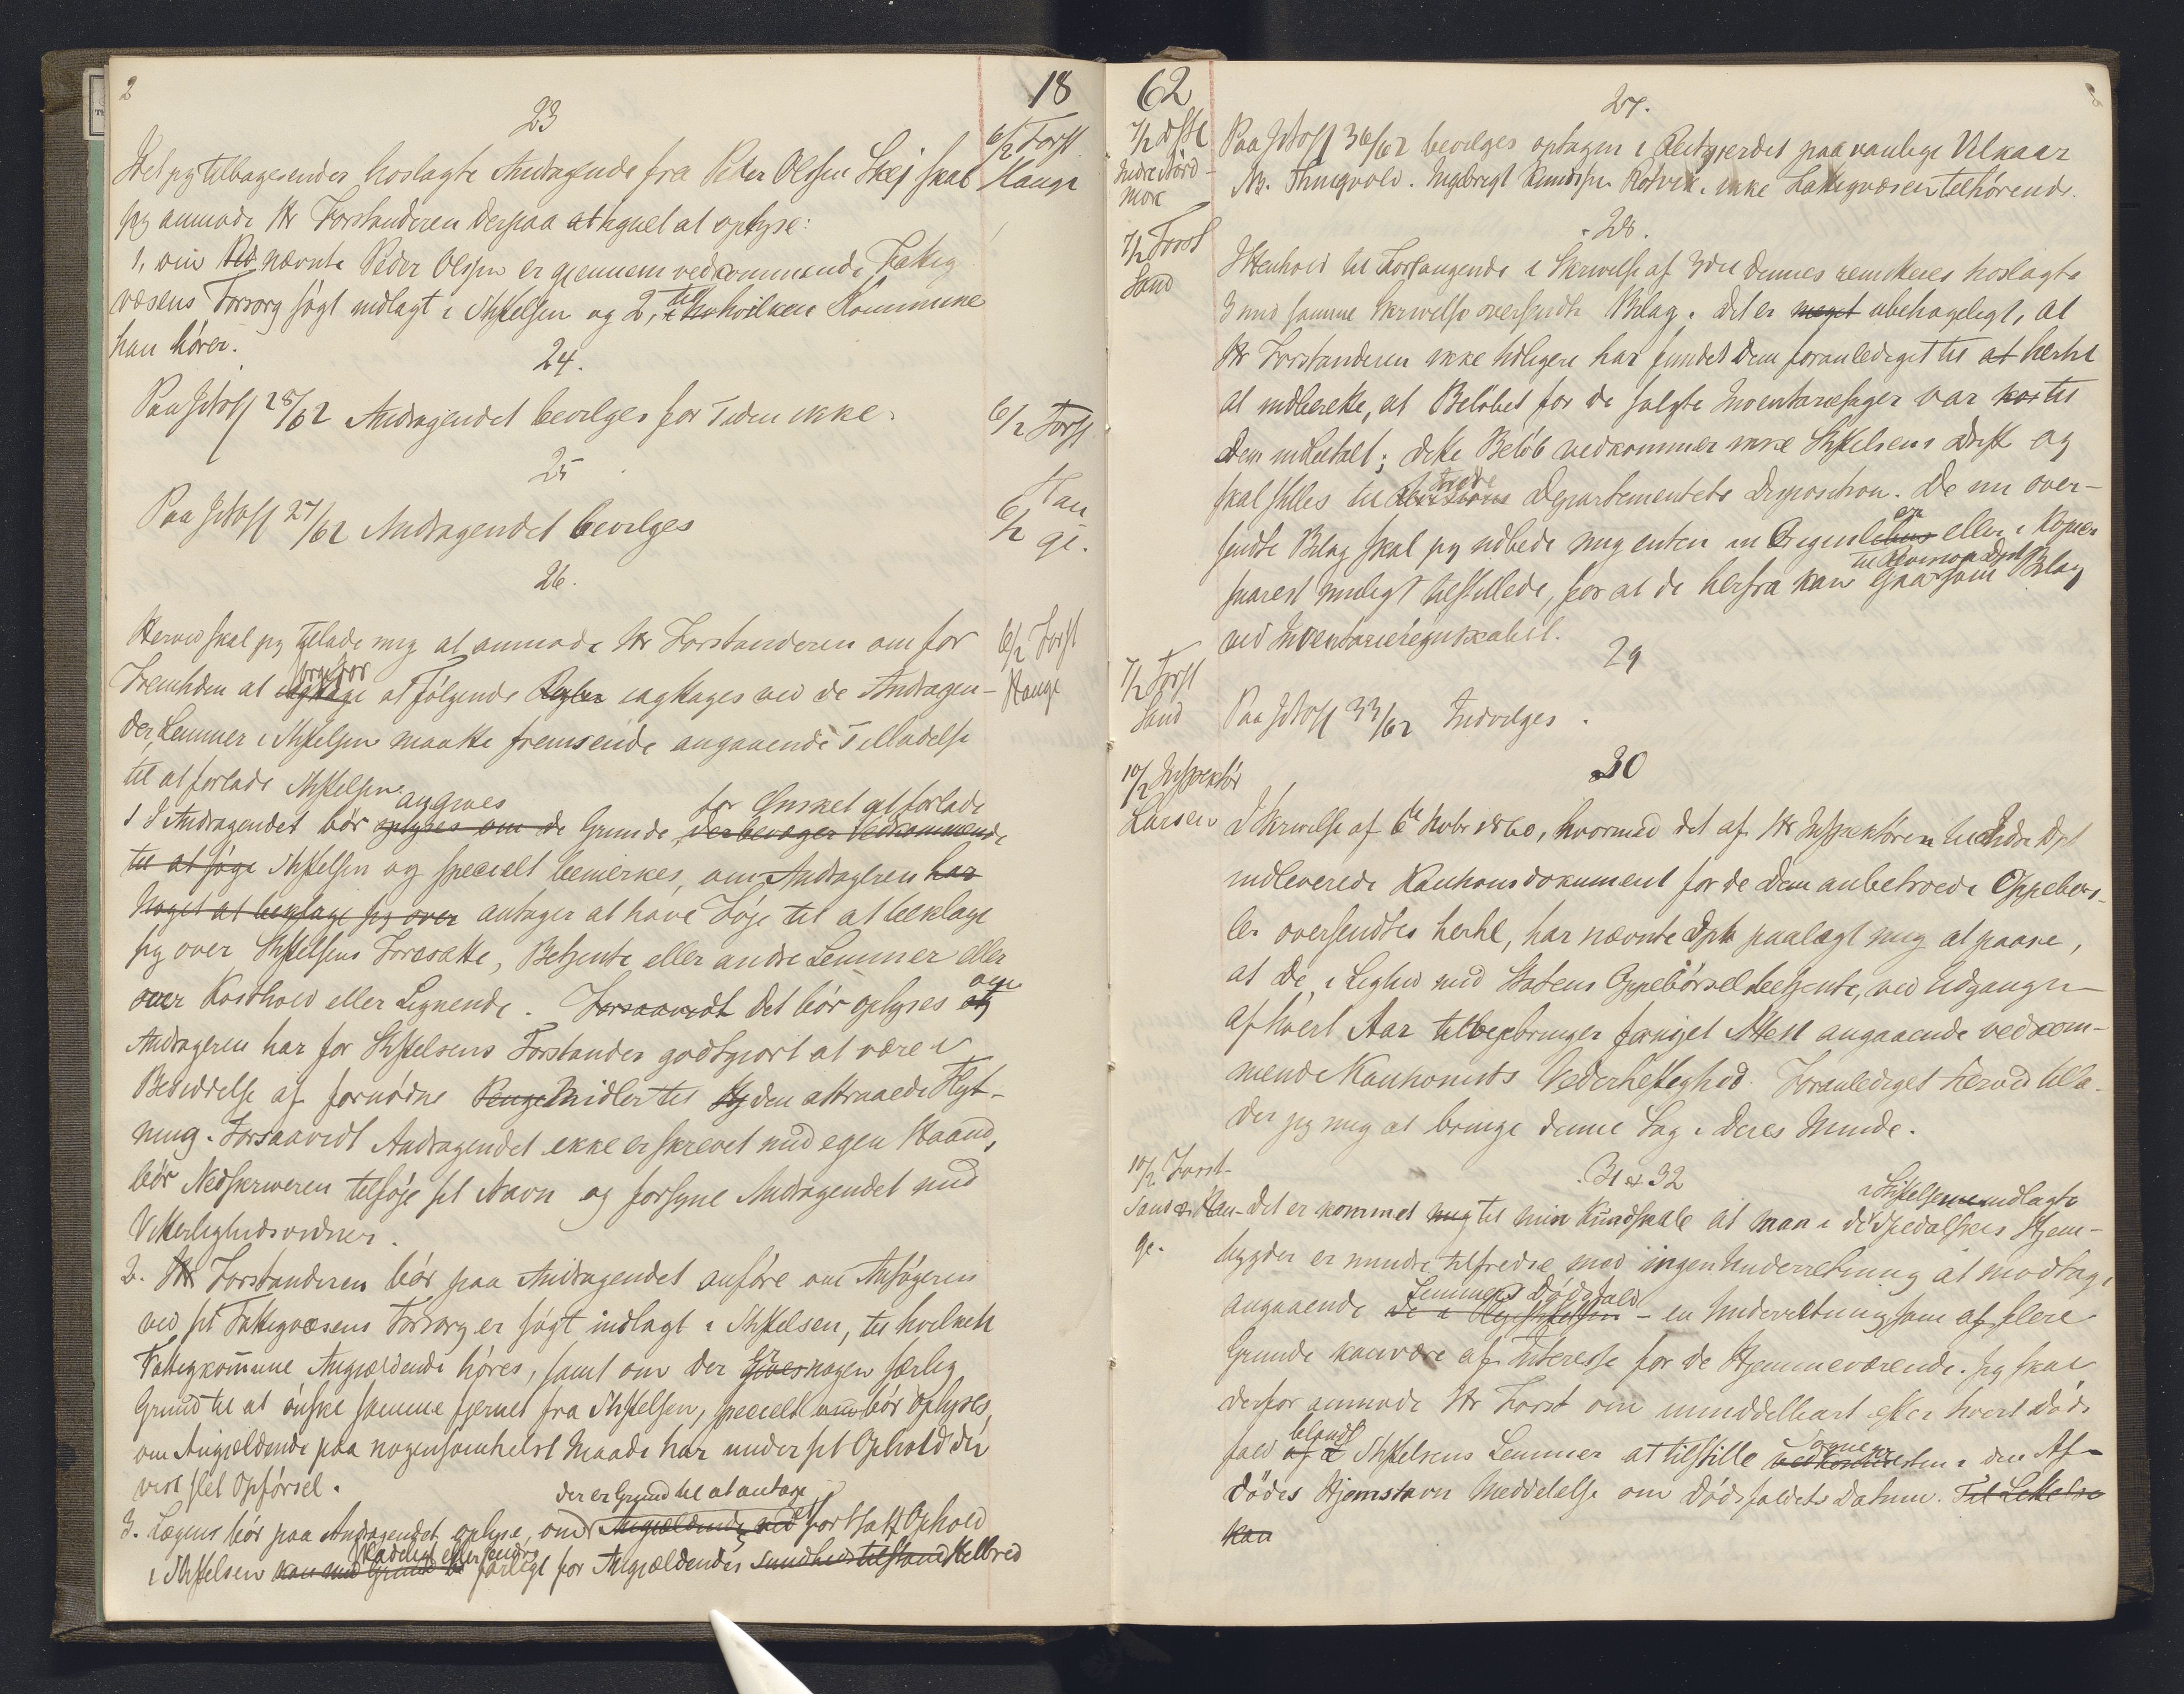 2
18
23
6/2 Forst
Hauge
Idet jeg tilbagesender hoslagte Andragende fra Peder Olsen Skej skal
jeg anmode Hr Forstanderen derpaa at oplyse:
1, om nævnte Peder Olsen er gjennem vedkommende Fattig
væsens Forsorg søgt indlagt i Stiftelsen og 2, til hvilken Kommune
han hører.
24.
6/2 Forst
Paa Jrnoff 28/62 Andragendet bevilges for Tiden ikke.
25
Hau
6/2 ge.
Paa Jrnoff 27/62 Andragendet bevilges
26.
6/2 Forst
Hauge
Herved skal jeg tillade mig at anmode Hr Forstanderen om for
Fremtiden at sørge for at følgende Regler iagttages ved de Andragen-
der, Lemmer i Stiftelsen maatte fremsende angaaende Tilladelse
til at forlade Stiftelsen.
angives for Ønsket at forlade
1 I Andragendet bør oplyses om de Grunde, der bevæger Vedkommende
til at søge Stiftelsen og specielt bemerkes, om Andrageren har
Noget at beklage sig over antager at have Føje til at beklage
sig over Stiftelsens Foresatte, Betjente eller andre Lemmer eller
over Kosthold eller Lignende. Forsaavidt det bør oplyses om
Andrageren har for Stiftelsens Forstander godtgjort at være i
Besiddelse af fornødne Penge Midler til den attraaede Flyt-
ning. Forsaavidt Andragendet ikke er skrevet med egen Haand,
bør Nedskriveren tilføje sit Navn og forsyne Andragendet med
Vitterlighedsvidner.
2. Hr Forstanderen bør paa Andragendet anføre om Ansøgeren
ved sit Fattigvæsens Forsorg er søgt indlagt i Stiftelsen, til hvilken
Fattigkommune Angjældende høres, samt om der er nogen særlig
Grund til at ønske samme fjernet fra Stiftelsen, specielt bør oplyses,
om Angjældende paa nogensomhelst Maade har under sit Ophold der
vist slet Opførsel.
der er Grund til at antage
3. Lægens bør paa Andragendet oplyse, om Angjældende ved fortsatt Ophold
skadeligt eller endog
i Stiftelsen kan med Grund farligt for Angjældendes Sundhedstilstand Helbred
62
27.
7/2 Dstl
Indre Nord-
møre
Paa Jrnoff 36/62 bevilges optagen i Reitgjerdet paa vanlige Vilkaar
Ingebrigt Knudsen Rotvik, ikke Fattigvæsen tilhørende.
28.
7/2 Forst
Sand
I Henhold til Forlangende i Skrivelse af 3die dennes remitteres hoslagte
3 med samme Skrivelse oversendte Bilag. Det er meget ubehageligt, at
Hr Forstanderen ikke tidligere har fundet Dem foranlediget til at hertil
at indberette, at Beløbet for de solgte Inventariesager var til
Dem indbetalt; dette Beløb vedkommer ikke Stiftelsens Drift og
skal stilles til Indre Revisions Departementets Disposition. De nu over-
sendte Bilag skal jeg udbede mig enten en Gjenpart eller i Kopier
til Revisions Dpt
snarest muligt tilstillede, for at de herfra kan gaa som Bilag
ved Inventarieregnskabet.
29
7/2 Forst
Sand
Paa Jrnoff 33/62 Indvilges.
30
10/2 Inspektør
Larsen
I Skrivelse af 6te Novbr 1860, hvormed det af Hr Inspektøren til Indre Dpt
indleverede Kautionsdokument for de Dem anbetroede Oppebørs-
ler oversendtes hertil, har nævnte Dpt paalagt mig at paase,
at De, i Lighed med Statens Oppebørselsbetjente, ved Udgangen
af hvert Aar tilvejebringer fornøjet Attest angaaende vedkom-
mende Kautionists Vederheftighed. Foranlediget herved tilla-
der jeg mig at bringe denne Sag i Deres Minde.
31 & 32
10/2 Forst.
Sand & Hau-
ge.
i Stiftelserne indlagte
Det er kommet mig til min Kundskab at man i de Spedalskes Hjem-
bygder er mindre tilfredse med ingen Underretning at modtage
Lemmers Dødsfald
angaaende de i Plejestiftelsen – en Underretning som af flere
Grunde kan være af Interesse for de Hjemmeværende. Jeg skal
derfor anmode Hr Forst om umiddelbart efter hvert Døds-
blandt
fald af Stiftelsens Lemmer at tilstille Sognepresten i den Af-
dødes Hjemstavn Meddelelse om Dødsfaldets Datum. Til Lettelse
kan